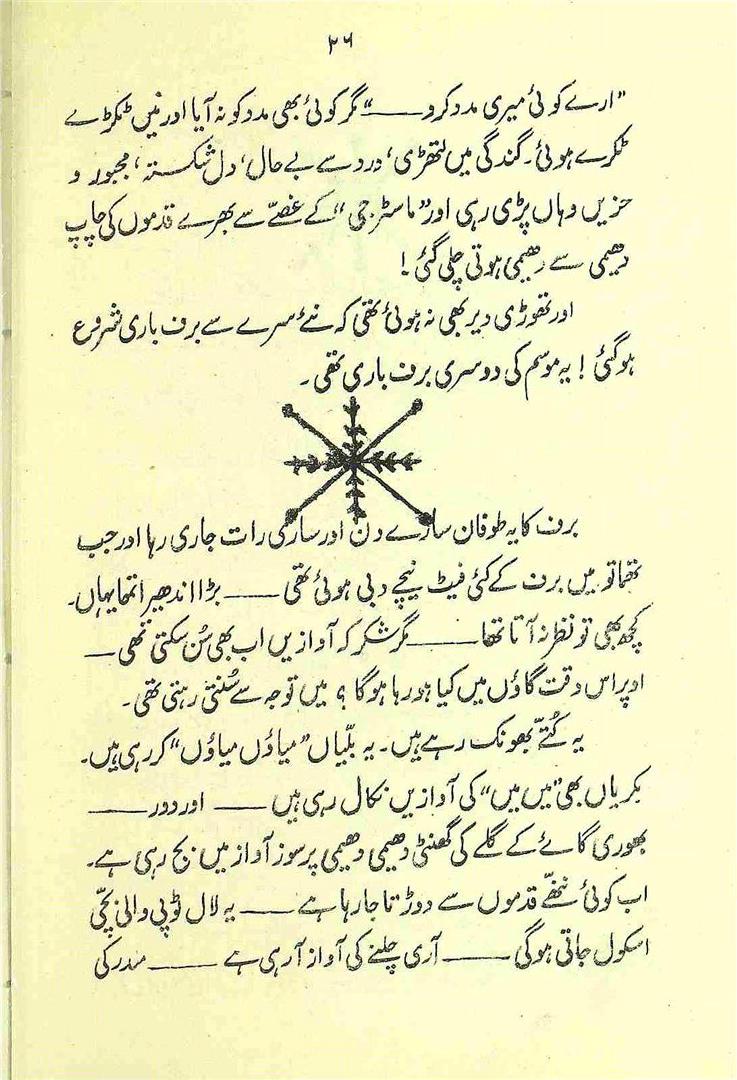 ۲۶
”ارے کوئی میری مدد کرو ——“ مگر کوئی بھی مدد کو نہ آیا اور میں ٹکڑے
ٹکڑے ہوئی۔ گندگی میں لتھڑی، درد سے بے حال، دل شکستہ، مجبور و
حزیں وہاں پڑی رہی اور ”ماسٹر جی“ کے غصّے سے بھرے قدموں کی چاپ
دھیمی سے دھیمی ہوتی چلی گئی!
اور تھوڑی دیر بھی نہ ہوئی تھی کہ نئے سرے سے برف باری شروع
ہو گئی! یہ موسم کی دوسری برف باری تھی۔
برف کا یہ طوفان سارے دن اور ساری رات جاری رہا اور جب
تھما تو میں برف کے کئی فیٹ نیچے دبی ہوئی تھی —— بڑا اندھیرا تھا یہاں۔
کچھ بھی تو نظر نہ آتا تھا —— مگر شکر کہ آوازیں اب بھی سُن سکتی تھی ——
اوپر اس وقت گاؤں میں کیا ہو رہا ہوگا؟ میں توجہ سے سُنتی رہتی تھی۔
یہ کُتّے بھونک رہے ہیں۔ یہ بلّیاں ”میاؤں میاؤں“ کر رہی ہیں۔
بکریاں بھی ”میں میں“ کی آوازیں نکال رہی ہیں —— اور دور ——
بھوری گائے کے گلے کی گھنٹی دھیمی دھیمی پر سوز آواز میں بج رہی ہے۔
اب کوئی ننھے قدموں سے دوڑتا جا رہا ہے —— یہ لال ٹوپی والی بچّی
اسکول جاتی ہوگی —— آری چلنے کی آواز آ رہی ہے —— مندر کی